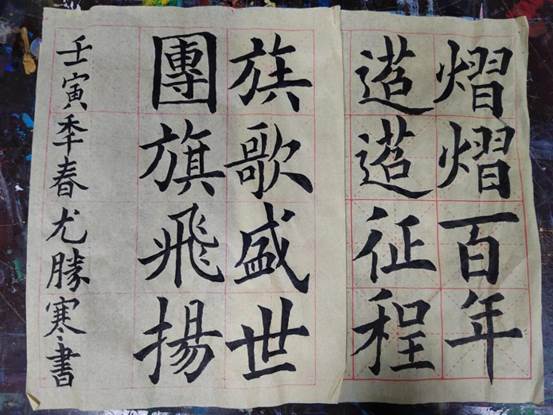 熠熠百年
迢迢征程
族歌盛世
團旗飛揚
壬寅季春尤勝寒書